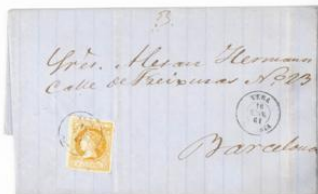 B.
Sres. Mesan Hermann
Calle de Freixuras Nº 23
VERA
16
61
Barcelona